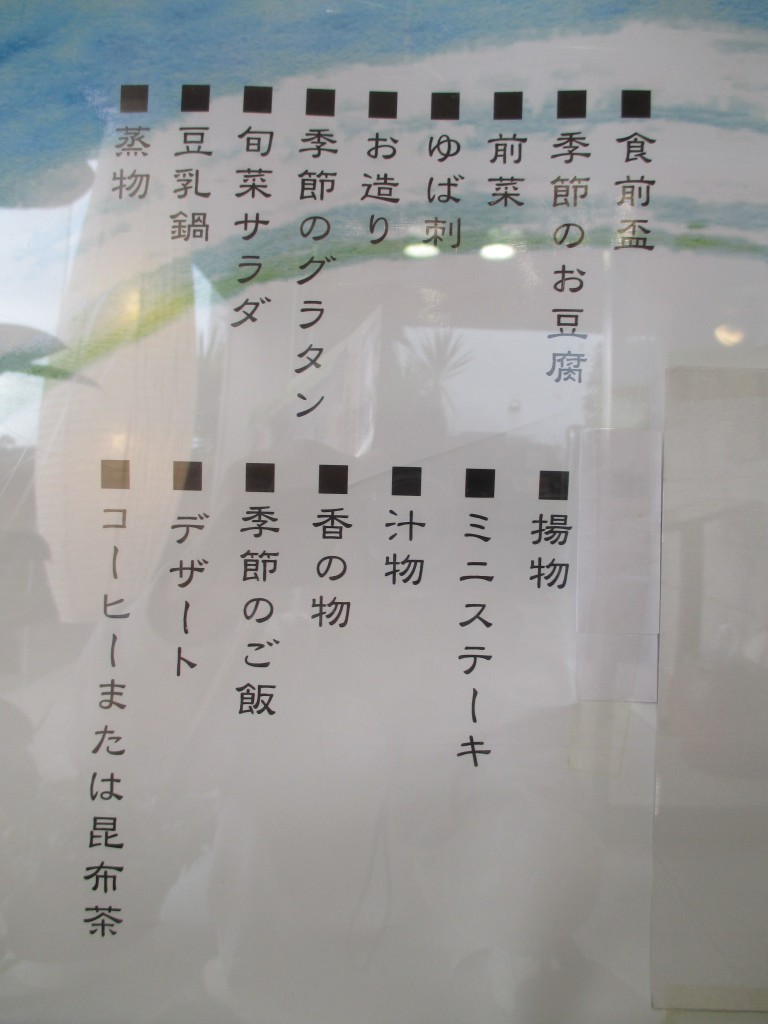 ■食前盃
■季節のお豆腐
■前菜
■ゆば刺
■お造り
■季節のグラタン
■旬菜サラダ
■豆乳鍋
■蒸物
■揚物
■ミニステーキ
■汁物
■香の物
■季節のご飯
■デザート
■コーヒーまたは昆布茶